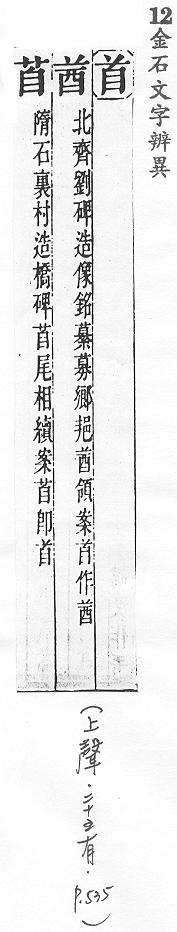 12金石文字辨異
首
酋 北齊劉碑造像銘綦募鄉邑酋領案首作酋
苜 隋石裏村造橋碑苜尾相續案苜即首
(上聲·二十五有·P.535)